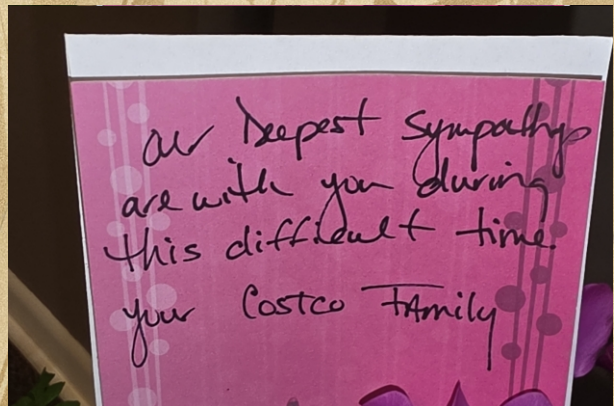 our Deepest Sympathy
are with you during
this difficult time.
your Costco Family